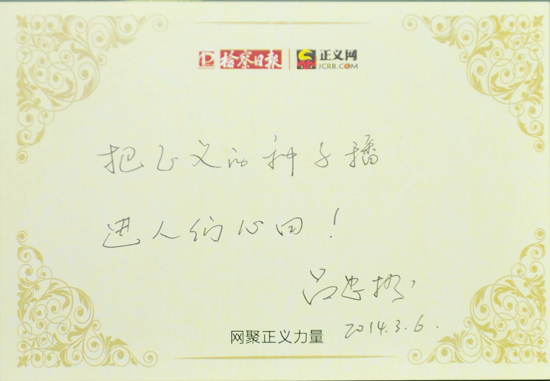 检察日报 正义网
JCRB.COM
把正义的种子播
进人们心田！
吕忠梅
2014.3.6.
网聚正义力量